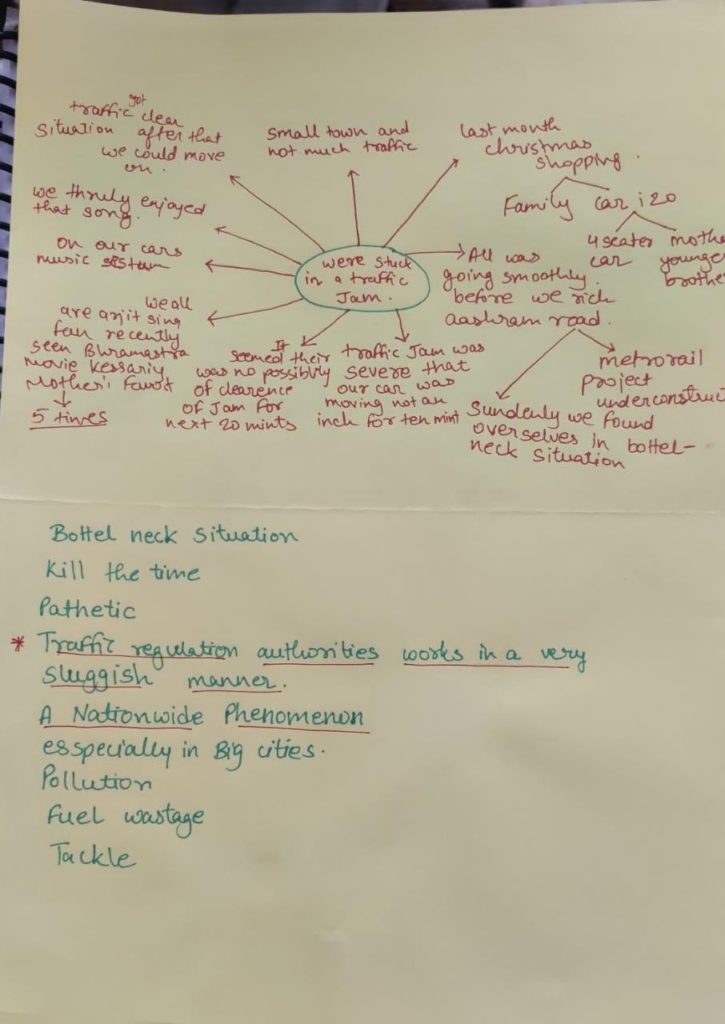 got
traffic clear
situation after that
we could move
on.
small town and
not much traffic
last month
christmas
shopping.
Family car i20
4 seater
car
mothe
younger
brothe
we thruly enjoyed
that song.
on our cars
music sistam
were stuck
in a traffic
Jam.
All was
going smoothly
before we rich
aashram road.
we all
are arjit sing
fan recently
seen Bhramastra
movie Kessariy
Mother's favrot
5 times
It
seemed their
was no possiblity
of clearence
of Jam for
next 20 mints
traffic Jam was
severe that
our car was
moving not an
inch for ten mint
Sundenly we found
overselves in bottel-
neck situation
metrorail
project
underconstruct
Bottel neck situation
Kill the time
Pathetic
* Traffic regulation authorities works in a very
sluggish manner.
A Nationwide Phenomenon
esspecially in Big cities.
Pollution
Fuel wastage
Tackle